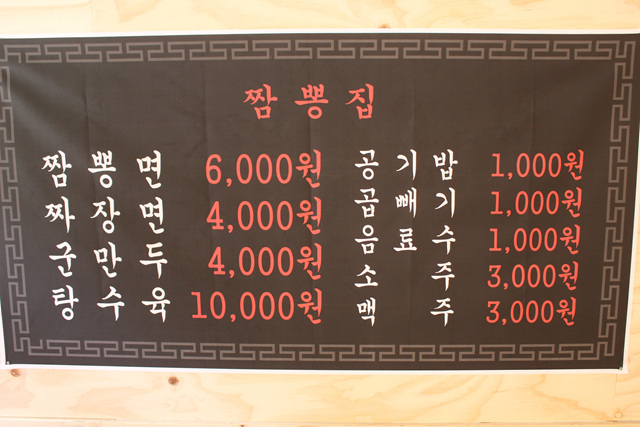 짬뽕집
짬뽕면 6,000원
짜장면 4,000원
군만두 4,000원
탕수육 10,000원
공기밥 1,000원
곱빼기 1,000원
음료수 1,000원
소주 3,000원
맥주 3,000원